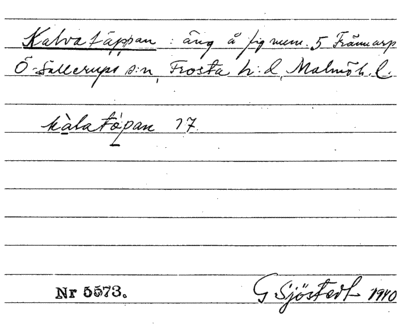 Kalvatäppan : äng å fig num. 5 Främarp
Ö-Sallerups s:n, Frosta h:d, Malmöh. l.
kàlatópan 17.
Nr 5573.
G Sjöstedt 1940